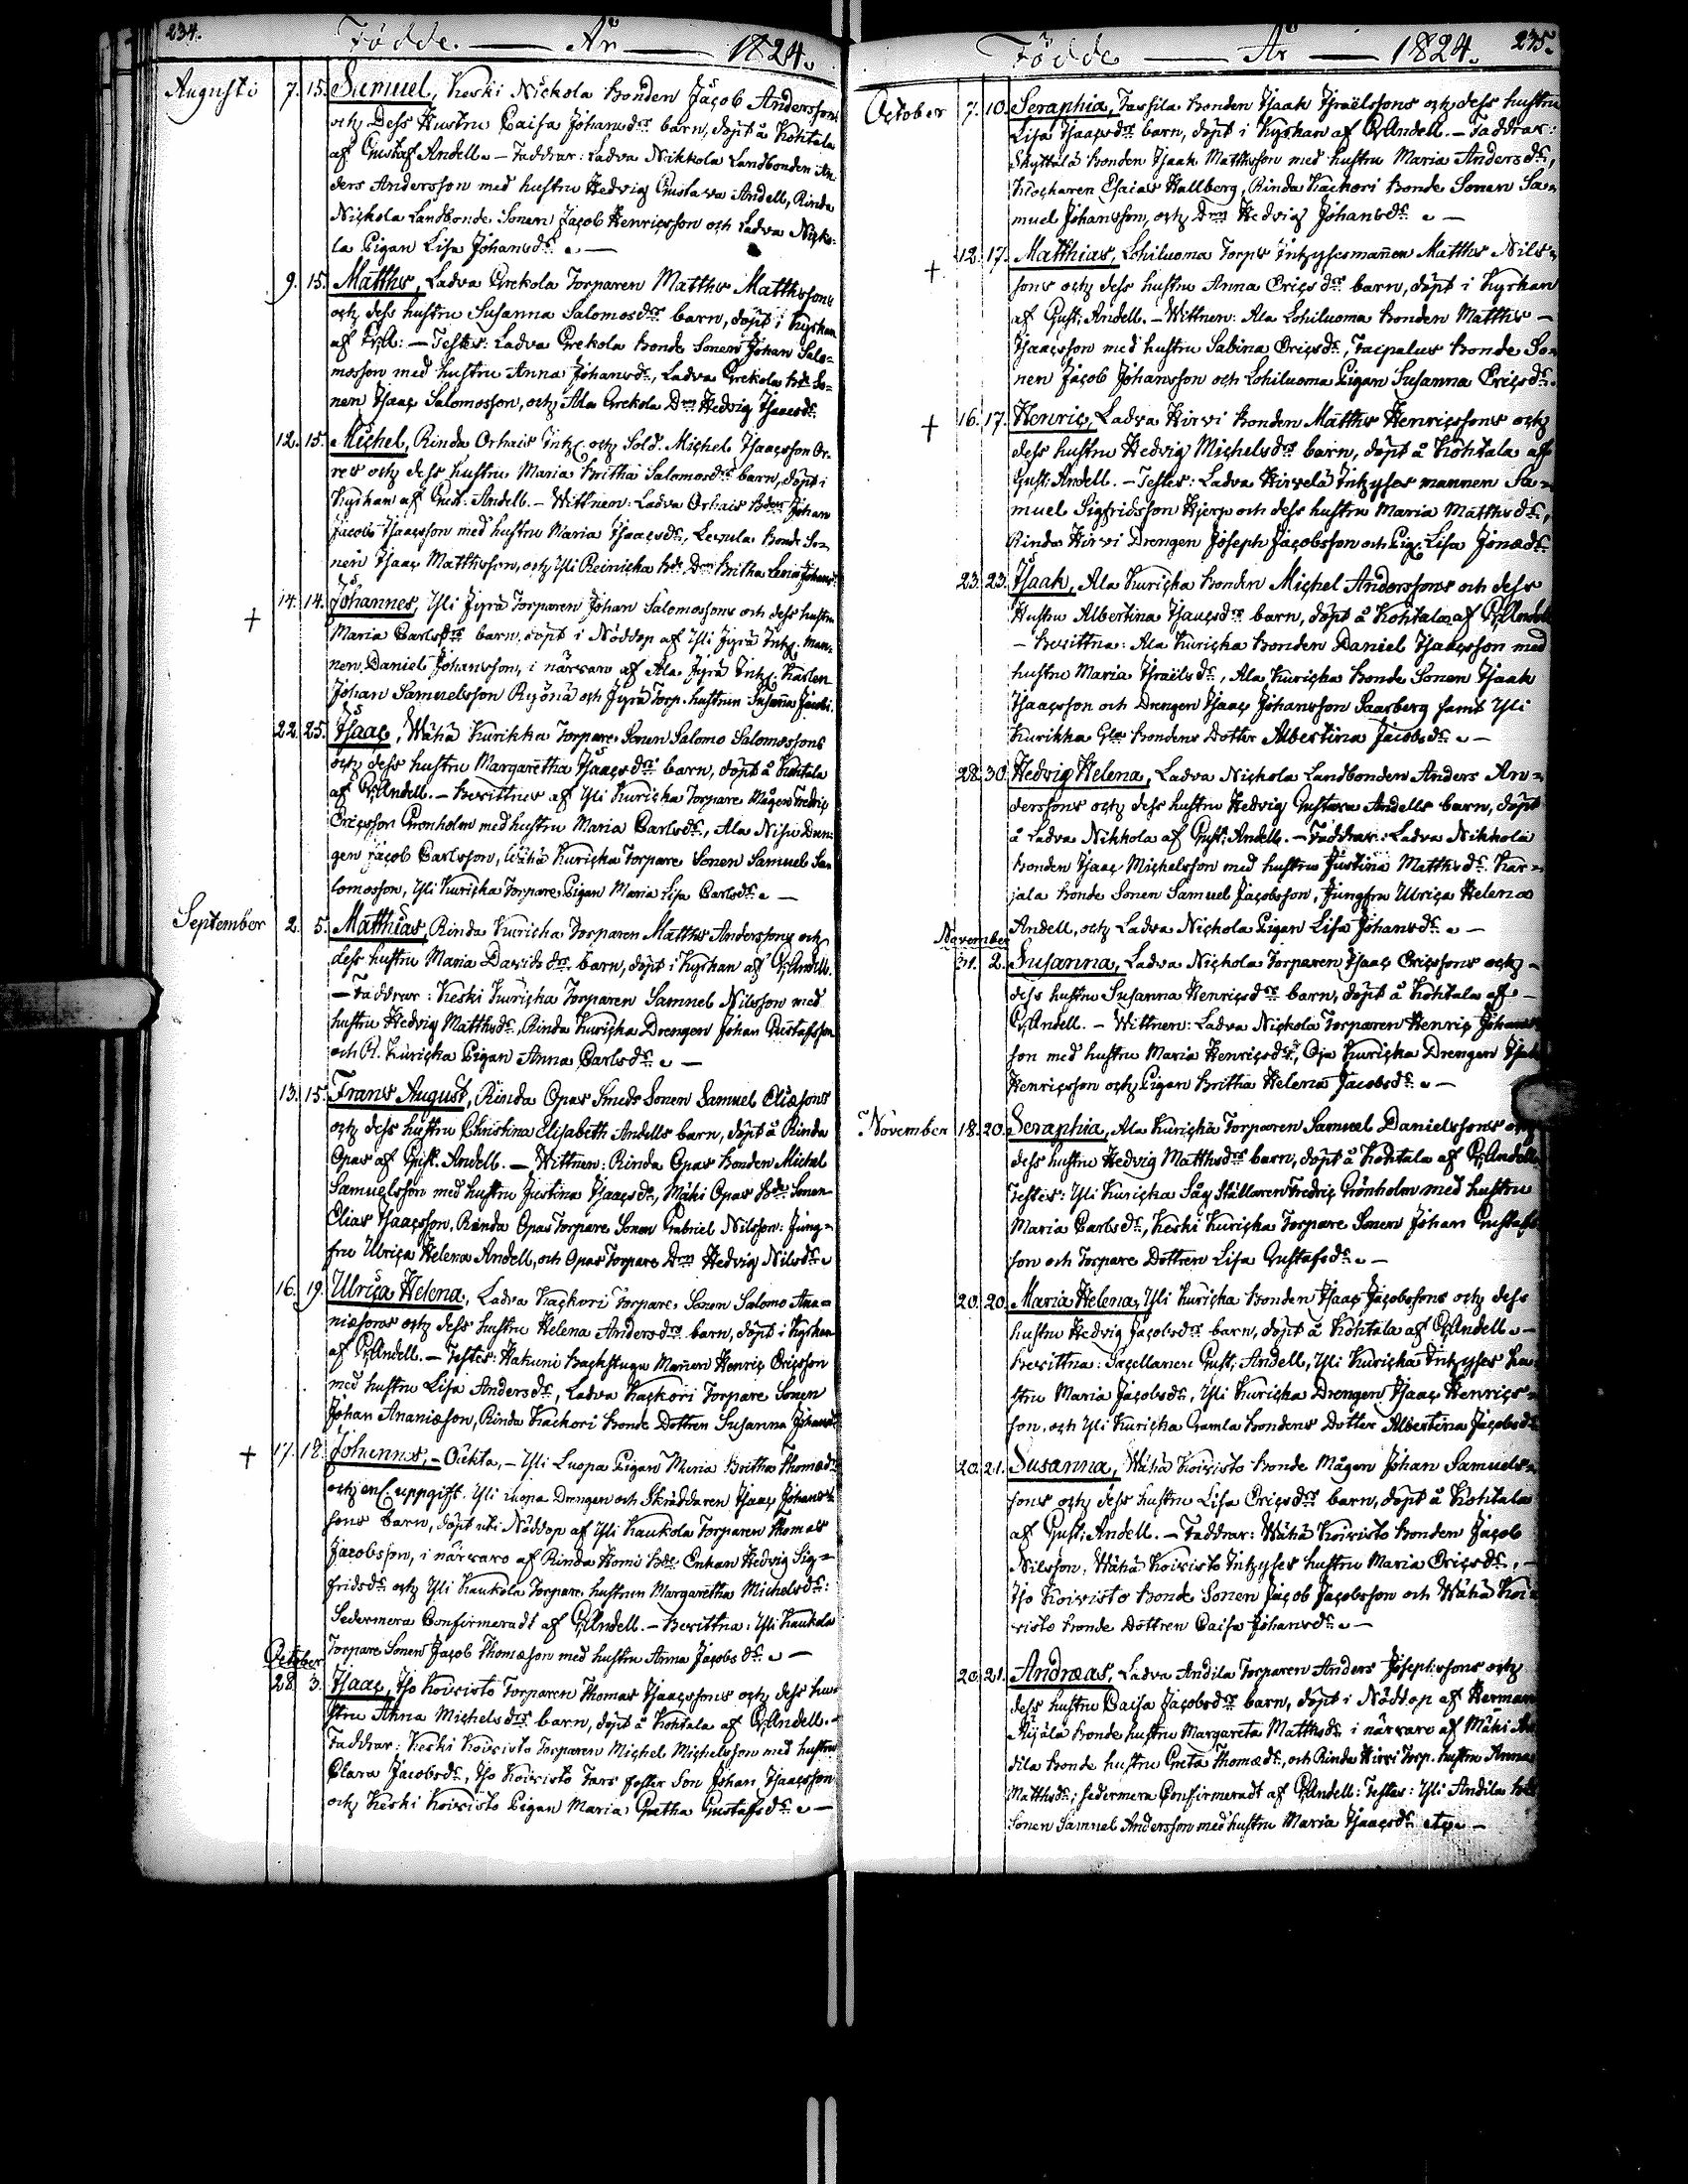 234.
Födde. — År — 1824.
Augusti 7. 15. Samuel, Keski Nickola Bonden Jacob Anderssons
och Dess Hustru Caisa Johansdrs barn, döpt å Kohtala
af Gustaf Andell. — Faddrar: Ladva Nikkola Landbonden An-
ders Andersson med hustru Hedvig Gustava Andell, Rinda
Nickola Landbonde Sonen Jacob Henricsson och Ladva Nicko-
la Pigan Lisa Johansdr. —
9. 15. Matths, Ladva Grekola Torparen Matths Matthssons
och dess hustru Susanna Salomosdrs barn, döpt i Kyrkan
af G. A: — Testes: Ladva Grekola Bonde Sonen Johan Salo-
mosson med hustru Anna Johansdr, Ladva Grekola Bde So-
nen Isaac Salomosson, och Ala Grekola Drn Hedvig Isaacsdr.
12. 15. Michel, Rinda Orhais Inh. och Sold. Michel Isaacsson Or-
res och dess hustru Maria Britha Salomosdrs barn, döpt i
Kyrkan af Gust: Andell. — Wittnen: Ladva Orhais Bden Johan
Jacob Isaacsson med hustru Maria Isaacsdr, Levula Bonde So-
nen Isaac Matthsson, och Yli Reinicka Bde Drn Britha Lena Johansdr.
+ 14. 14. Johannes, Yli Jyrä Torparen Johan Salomossons och dess hustru
Maria Carlsdrs barn, döpt i Nöddop af Yli Jyrä Inh. Man-
nen Daniel Johansson, i närvaro af Ala Jyrä Inh. Karlen
Johan Samuelsson Ryönä och Jyrä Torp. hustrun Susanna Jacobs.
22. 25. Isaac, Wähä Kurikka Torpare Sonen Salomo Salomossons
och dess hustru Margaretha Isaacsdrs barn, döpt å Kohtala
af G. Andell. — Bevittnes af Yli Kuricka Torpare Mågen Fredric
Ericsson Grönholm med hustru Maria Carlsdr, Ala Nisu Dren-
gen Jacob Carlsson, Wähä Kuricka Torpare Sonen Samuel Sa-
lomosson, Yli Kuricka Torpare Pigan Maria Lisa Carlsdr. —
September 2. 5. Matthias, Rinda Kuricka Torparen Matths Anderssons och
dess hustru Maria Davidsdrs barn, döpt i Kyrkan af G. Andell.
— Faddrar: Keski Kuricka Torparen Samuel Nilsson med
hustru Hedvig Matthsdr, Rinda Kuricka Drengen Johan Gustafsson
och Kuricka Pigan Anna Carlsdr. —
13. 15. Frans August, Rinda Opas Smeds Sonen Samuel Eliæsons
och dess hustru Christina Elisabeth Andells barn, döpt å Rinda
Opas af Gust. Andell. — Wittnen: Rinda Opas Bonden Michel
Samuelsson med hustru Justina Isaacsdr, Mäki Opas Bde Sonen
Elias Isaacsson, Rinda Opas Torpare Sonen Gabriel Nilsson: Jung-
fru Ulrica Helena Andell, och Opas Torpare Drn Hedvig Nilsdr.
16. 19. Ulrica Helena, Ladva Kackori Torpare Sonen Salomo Ana-
niæsons och dess hustru Helena Andersdrs barn, döpt i Kyrkan
af G. Andell. — Testes: Hakuni Backstugu Mannen Henric Ericsson
med hustru Lisa Andersdr, Ladva Kackori Torpare Sonen
Johan Ananiæson, Rinda Kackori Bonde Dottren Susanna Johansdr.
+ 17. 18. Johannes, — Oäkta, — Yli Luopa Pigan Maria Britha Thomædrs
och enl. uppgift. Yli Luopa Drengen och Skräddaren Isaac Johans-
sons barn, döpt uti Nöddop af Yli Kaukola Torparen Thomas
Jacobsson, i närvaro af Rinda Homi Bde Enkan Hedvig Sig-
fridsdr och Yli Kaukola Torpare hustrun Margaretha Michelsdr:
Sedermera Confirmeradt af G. Andell. — Bevittna: Yli Kaukola
Torpare Sonen Jacob Thomæson med hustru Anna Jacobsdr. —
October
28. 3. Isaac, Iso Koivisto Torparen Thomas Isaacssons och dess hu-
stru Anna Michelsdrs barn, döpt å Kohtala af G. Andell. —
Faddrar: Keski Koivisto Torparen Michel Michelsson med hustru
Clara Jacobsdr, Iso Koivisto Fars foster Son Johan Isaacsson
och Keski Koivisto Pigan Maria Gretha Gustafsdr. —
Födde — År — 1824. 235.
October 7. 10. Seraphia, Tassila Bonden Isaak Israëlssons och dess hustru
Lisa Isaacsdrs barn, döpt i Kyrkan af G. Andell. — Faddrar:
Skyttälä Bonden Isaak Matthsson med hustru Maria Andersdr,
Klockaren Esaias Hallberg, Rinda Kackori Bonde Sonen Sa-
muel Johansson, och Drn Hedvig Johansdr. —
+ 12. 17. Matthias, Lohiluoma Torps Inhysesmannen Matths Nils-
sons och dess hustru Anna Ericsdrs barn, döpt i Kyrkan
af Gust: Andell. — Wittnen: Ala Lohiluoma Bonden Matths —
Isaacsson med hustru Sabina Ericsdr, Taipalus Bonde So-
nen Jacob Johansson och Lohiluoma Pigan Susanna Ericsdr.
+ 16. 17. Henric, Ladva Hirvi Bonden Matths Henricssons och
dess hustru Hedvig Michelsdrs barn, döpt å Kohtala af
Gust: Andell. — Testes: Ladva Hirvelä Inhyses mannen Sa-
muel Sigfridsson Hjerp och dess hustru Maria Matthsdr,
Rinda Hirvi Drengen Joseph Jacobsson och Pig. Lisa Jonædr.
23. 23. Isaak, Ala Kuricka Bonden Michel Anderssons och dess
Hustru Albertina Isaacsdrs barn, döpt å Kohtala af G. Andell
— Bevittna: Ala Kuricka Bonden Daniel Isaacsson med
hustru Maria Israëlsdr, Ala Kuricka Bonde Sonen Isaak
Isaacsson och Drengen Isaac Johansson Saarberg samt Yli
Kurikka Gla Bondens Dotter Albertina Jacobsdr. —
28. 30. Hedvig Helena, Ladva Nickola Landbonden Anders An-
derssons och dess hustru Hedvig Gustava Andells barn, döpt
å Ladva Nikkola af Gust: Andell. — Faddrar: Ladva Nikkola
Bonden Isaac Michelsson med hustru Justina Matthsdr Kar-
jala Bonde Sonen Samuel Jacobsson, Jungfru Ulrica Helena
Andell, och Ladva Nickola Pigan Lisa Johansdr. —
November
31. 2. Susanna, Ladva Nickola Torparen Isaac Ericssons och —
dess hustru Susanna Henricsdrs barn, döpt å Kohtala af —
G. Andell. — Wittnen: Ladva Nickola Torparen Henric Johans-
son med hustru Maria Henricsdr, Oja Kuricka Drengen Isak
Henricsson och Pigan Britha Helena Jacobsdr. —
November 18. 20. Seraphia, Ala Kuricka Torparen Samuel Danielssons och
dess hustru Hedvig Matthsdrs barn, döpt å Kohtala af G. Andell.
Testes: Yli Kuricka Såg Ställaren Fredric Grönholm med hustru
Maria Carlsdr, Keski Kuricka Torpare Sonen Johan Gustafs-
son och Torpare Dottren Lisa Gustafsdr. —
20. 20. Maria Helena, Yli Kuricka Bonden Isaac Jacobssons och dess
hustru Hedvig Jacobsdrs barn, döpt å Kohtala af G. Andell. —
Bevittna: Sacellanen Gust: Andell, Yli Kuricka Inhyses hu-
stru Maria Jacobsdr, Yli Kuricka Drengen Isaac Henrics-
son, och Yli Kuricka Gamla Bondens Dotter Albertina Jacobsdr.
20. 21. Susanna, Wähä Koivisto Bonde Mågen Johan Samuels-
sons och dess hustru Lisa Ericsdrs barn, döpt å Kohtala
af Gust: Andell. — Faddrar: Wähä Koivisto Bonden Jacob
Nilsson, Wähä Koivisto Inhyses hustru Maria Ericsdr, —
Iso Koivisto Bonde Sonen Jacob Jacobsson och Wähä Koi-
visto Bonde Dottren Caisa Johansdr. —
20. 21. Andræas, Ladva Andila Torparen Anders Josephssons och
dess hustru Caisa Jacobsdrs barn, döpt i Nöddop af Herman
Äijälä Bonde hustru Margareta Matthsdr i närvaro af Mäki An-
dila Bonde hustru Greta Thomædr, och Rinda Hirvi Torp. hustru Anna
Matthsdr; sedermera Confirmeradt af G. Andell: Testes: Yli Andila Bde
Sonen Samuel Andersson med hustru Maria Isaacsdr etc. —